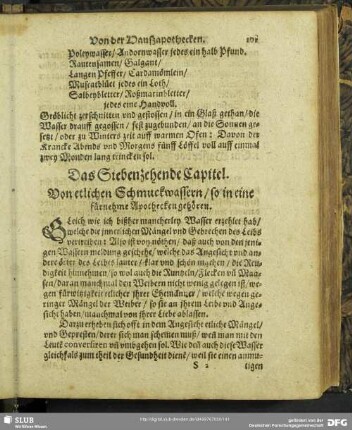 Von der Haußapothecken.
Poleywasser/ Andornwasser jedes ein halb Pfund.
Rautensamen/ Galgant/
Langen Pfeffer/ Cardamömlein/
Muscatblüet jedes ein Loth/
Salbeybletter/ Roßmarinbletter/
jedes eine Handvoll.
Gröblicht zerschnitten und gestossen/ in ein Glaß gethan/ die
Wasser drauff gegossen/ fest zugebunden/ an die Sonnen ge-
setzt/ oder zu Winters zeit auff warmen Ofen: Davon der
Krancke Abends und Morgens fünff Löffel voll auff einmal
zwey Monden lang trincken sol.
Das Siebenzehende Capitel.
Von etlichen Schmuckwassern/ so in eine
fürnehme Apothecken gehören.
Gleich wie ich bißher mancherley Wasser erzehlet hab/
welche die innerlichen Mängel und Gebrechen des Leibs
vertreiben: Also ist von nöthen/ daß auch von den jeni-
gen Wassern meldung geschehe/ welche das Angesicht und an-
dere örter des Leibes lauter/ klar und schön machen/
so wol auch die Runtzeln/ Flecken
sen/ daran manchmal den Weibern nicht wenig gelegen ist/ we-
gen fürwitzigkeit etlicher ihrer Ehemänner/ welche wegen ge-
ringer Mängel der Weiber/ so sie an ihrem Leibe und Ange-
sicht haben/ manchmal von ihrer Liebe ablassen.
Darzu erheben sich offt in dem Angesicht etliche Mängel/
und Gepresten/ derer sich man schemen muß/ weñ man mit den
Leuten conversiren uñ umbgehen sol. Wie deñ auch diese Wasser
gleichfals zum theil der Gesundheit dienẽ/ weil sie einen anmu-
S 2 tigen
SLUB
Wir führen Wissen.
gefördert von der
Deutschen Forschungsgemeinschaft
DFG